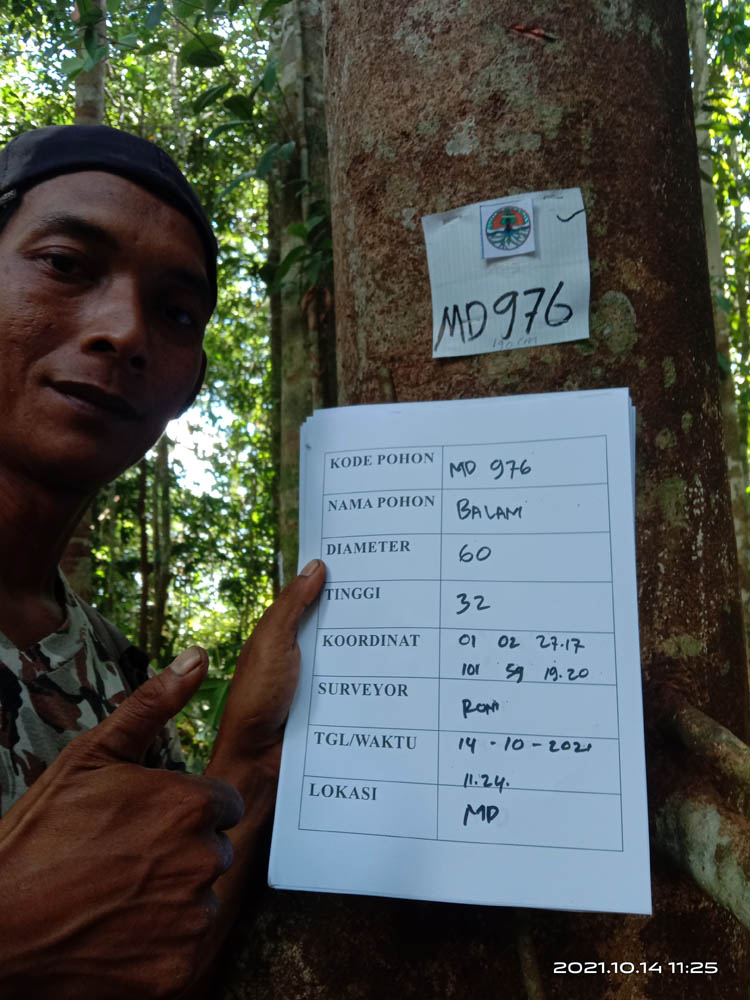 MD976
190 cm
KODE POHON MD 976
NAMA POHON BALAM
DIAMETER 60
TINGGI 32
KOORDINAT 01 02 27.17
101 59 19.20
SURVEYOR RONI
TGL/WAKTU 14-10-2021
11.24.
LOKASI MD
2021.10.14 11:25